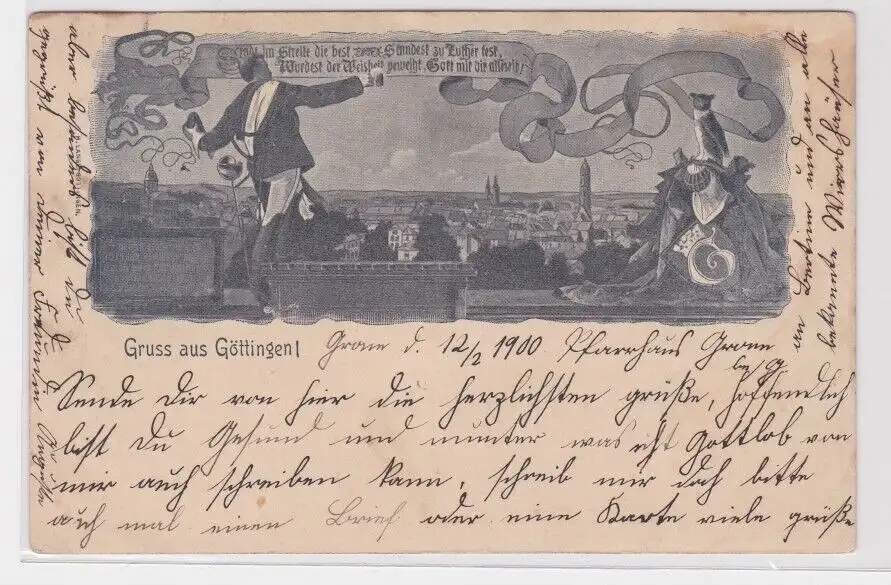 Stehst im Streite die best Standest zu Luther fest,
Wurdest der Weisheit geweiht, Gott mit dir allezeit!
Gruss aus Göttingen!
Grone d. 12/2 1900 Pfarrhaus Grone
bei G.
Sende Dir von hier die herzlichsten grüße, hoffendlich
bist Du Gesund und munter was ich Gottlob von
mir auch schreiben kann, schreib mir doch bitte
auch mal einen Brief oder eine Karte viele grüße
an Bertina und an alle
bekannte Wirtshäuser
aber besonders sei Du
von deiner Freundin